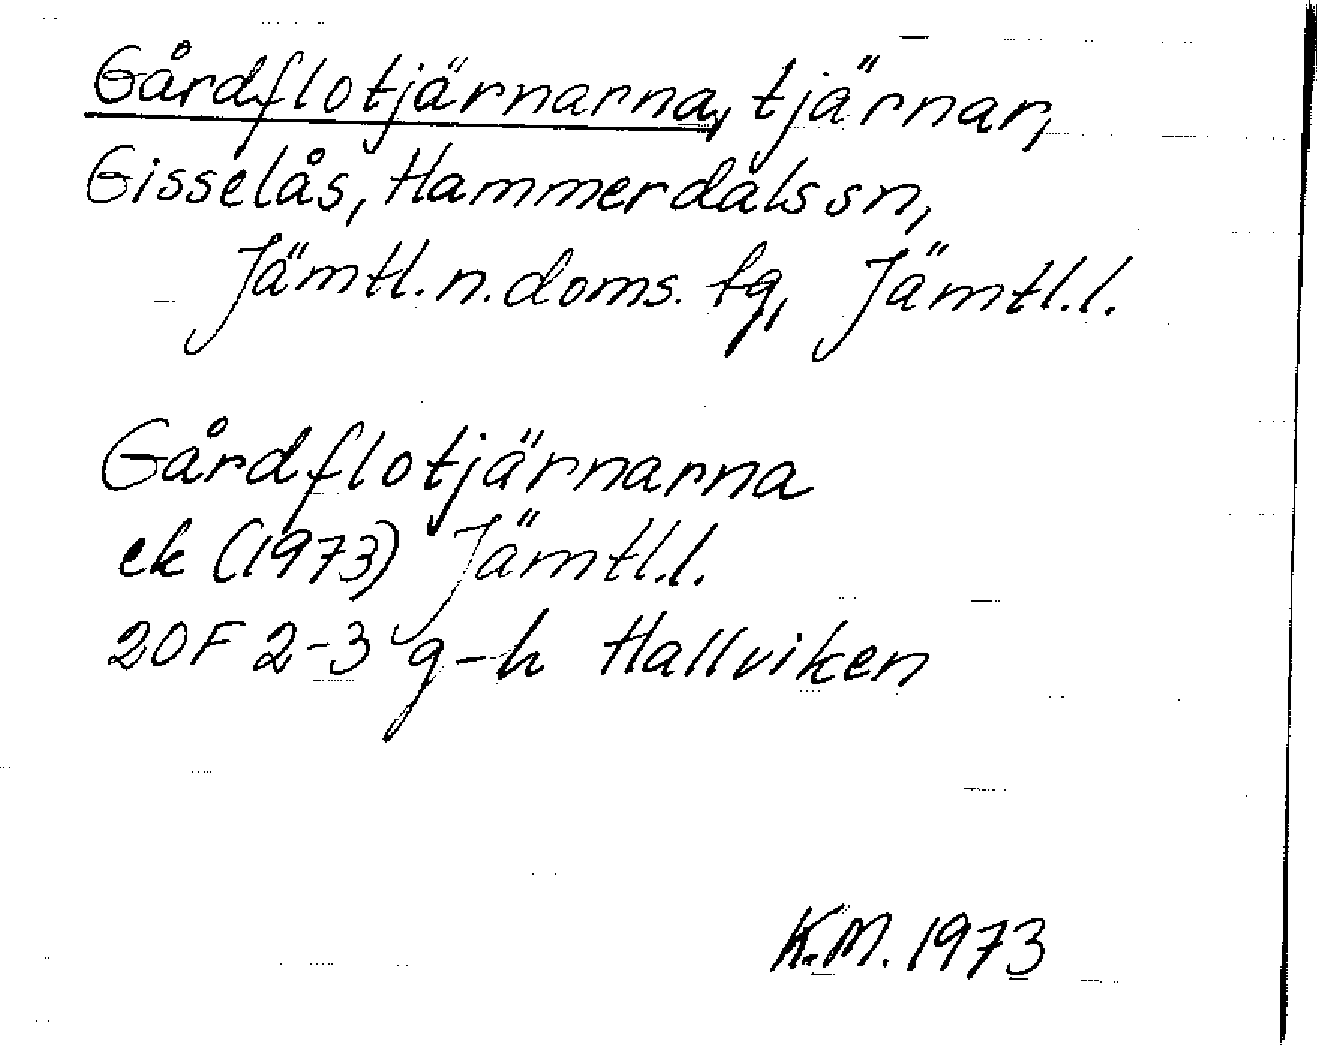 Gårdflotjärnarna, tjärnar,
Gisselås, Hammerdals sn,
Jämtl. n. doms. tg, Jämtl. l.
Gårdflotjärnarna
ek (1973) Jämtl. l.
20F 2-3 g-h Hallviken
K.M. 1973